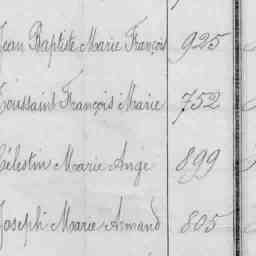 Jean Baptiste Marie François 925
Toussaint François Marie 752
Célestin Marie Ange 899
Joseph Marie Armand 805